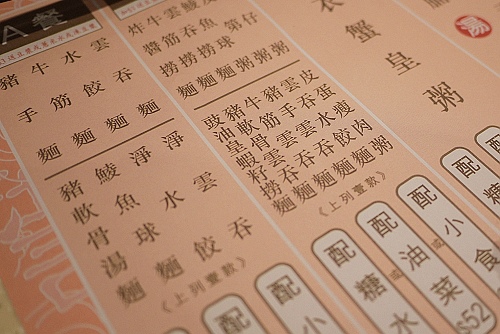 A 餐
雲吞麵
水餃麵
牛筋麵
豬手麵
淨雲吞
淨水餃
鯪魚球麵
豬軟骨湯麵
(上列壹款)
配小
配
仔粥
第粥
鯪魚球粥
雲吞撈麵
牛筋撈麵
炸醬撈麵
皮蛋瘦肉粥
雲吞水餃麵
豬手雲吞麵
牛筋雲吞麵
豬軟骨雲吞麵
豉油皇蝦籽撈麵
《上列壹款》
配小食
或
配油菜
或
配糖水
配
衣蟹皇粥
配
配
52